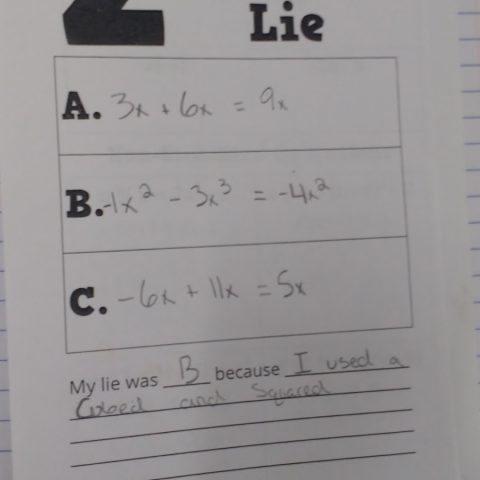 2
Lie
A. 3x + 6x = 9x
B. -1x² - 3x³ = -4x²
C. -6x + 11x = 5x
My lie was B because I used a
Cubed and Squared